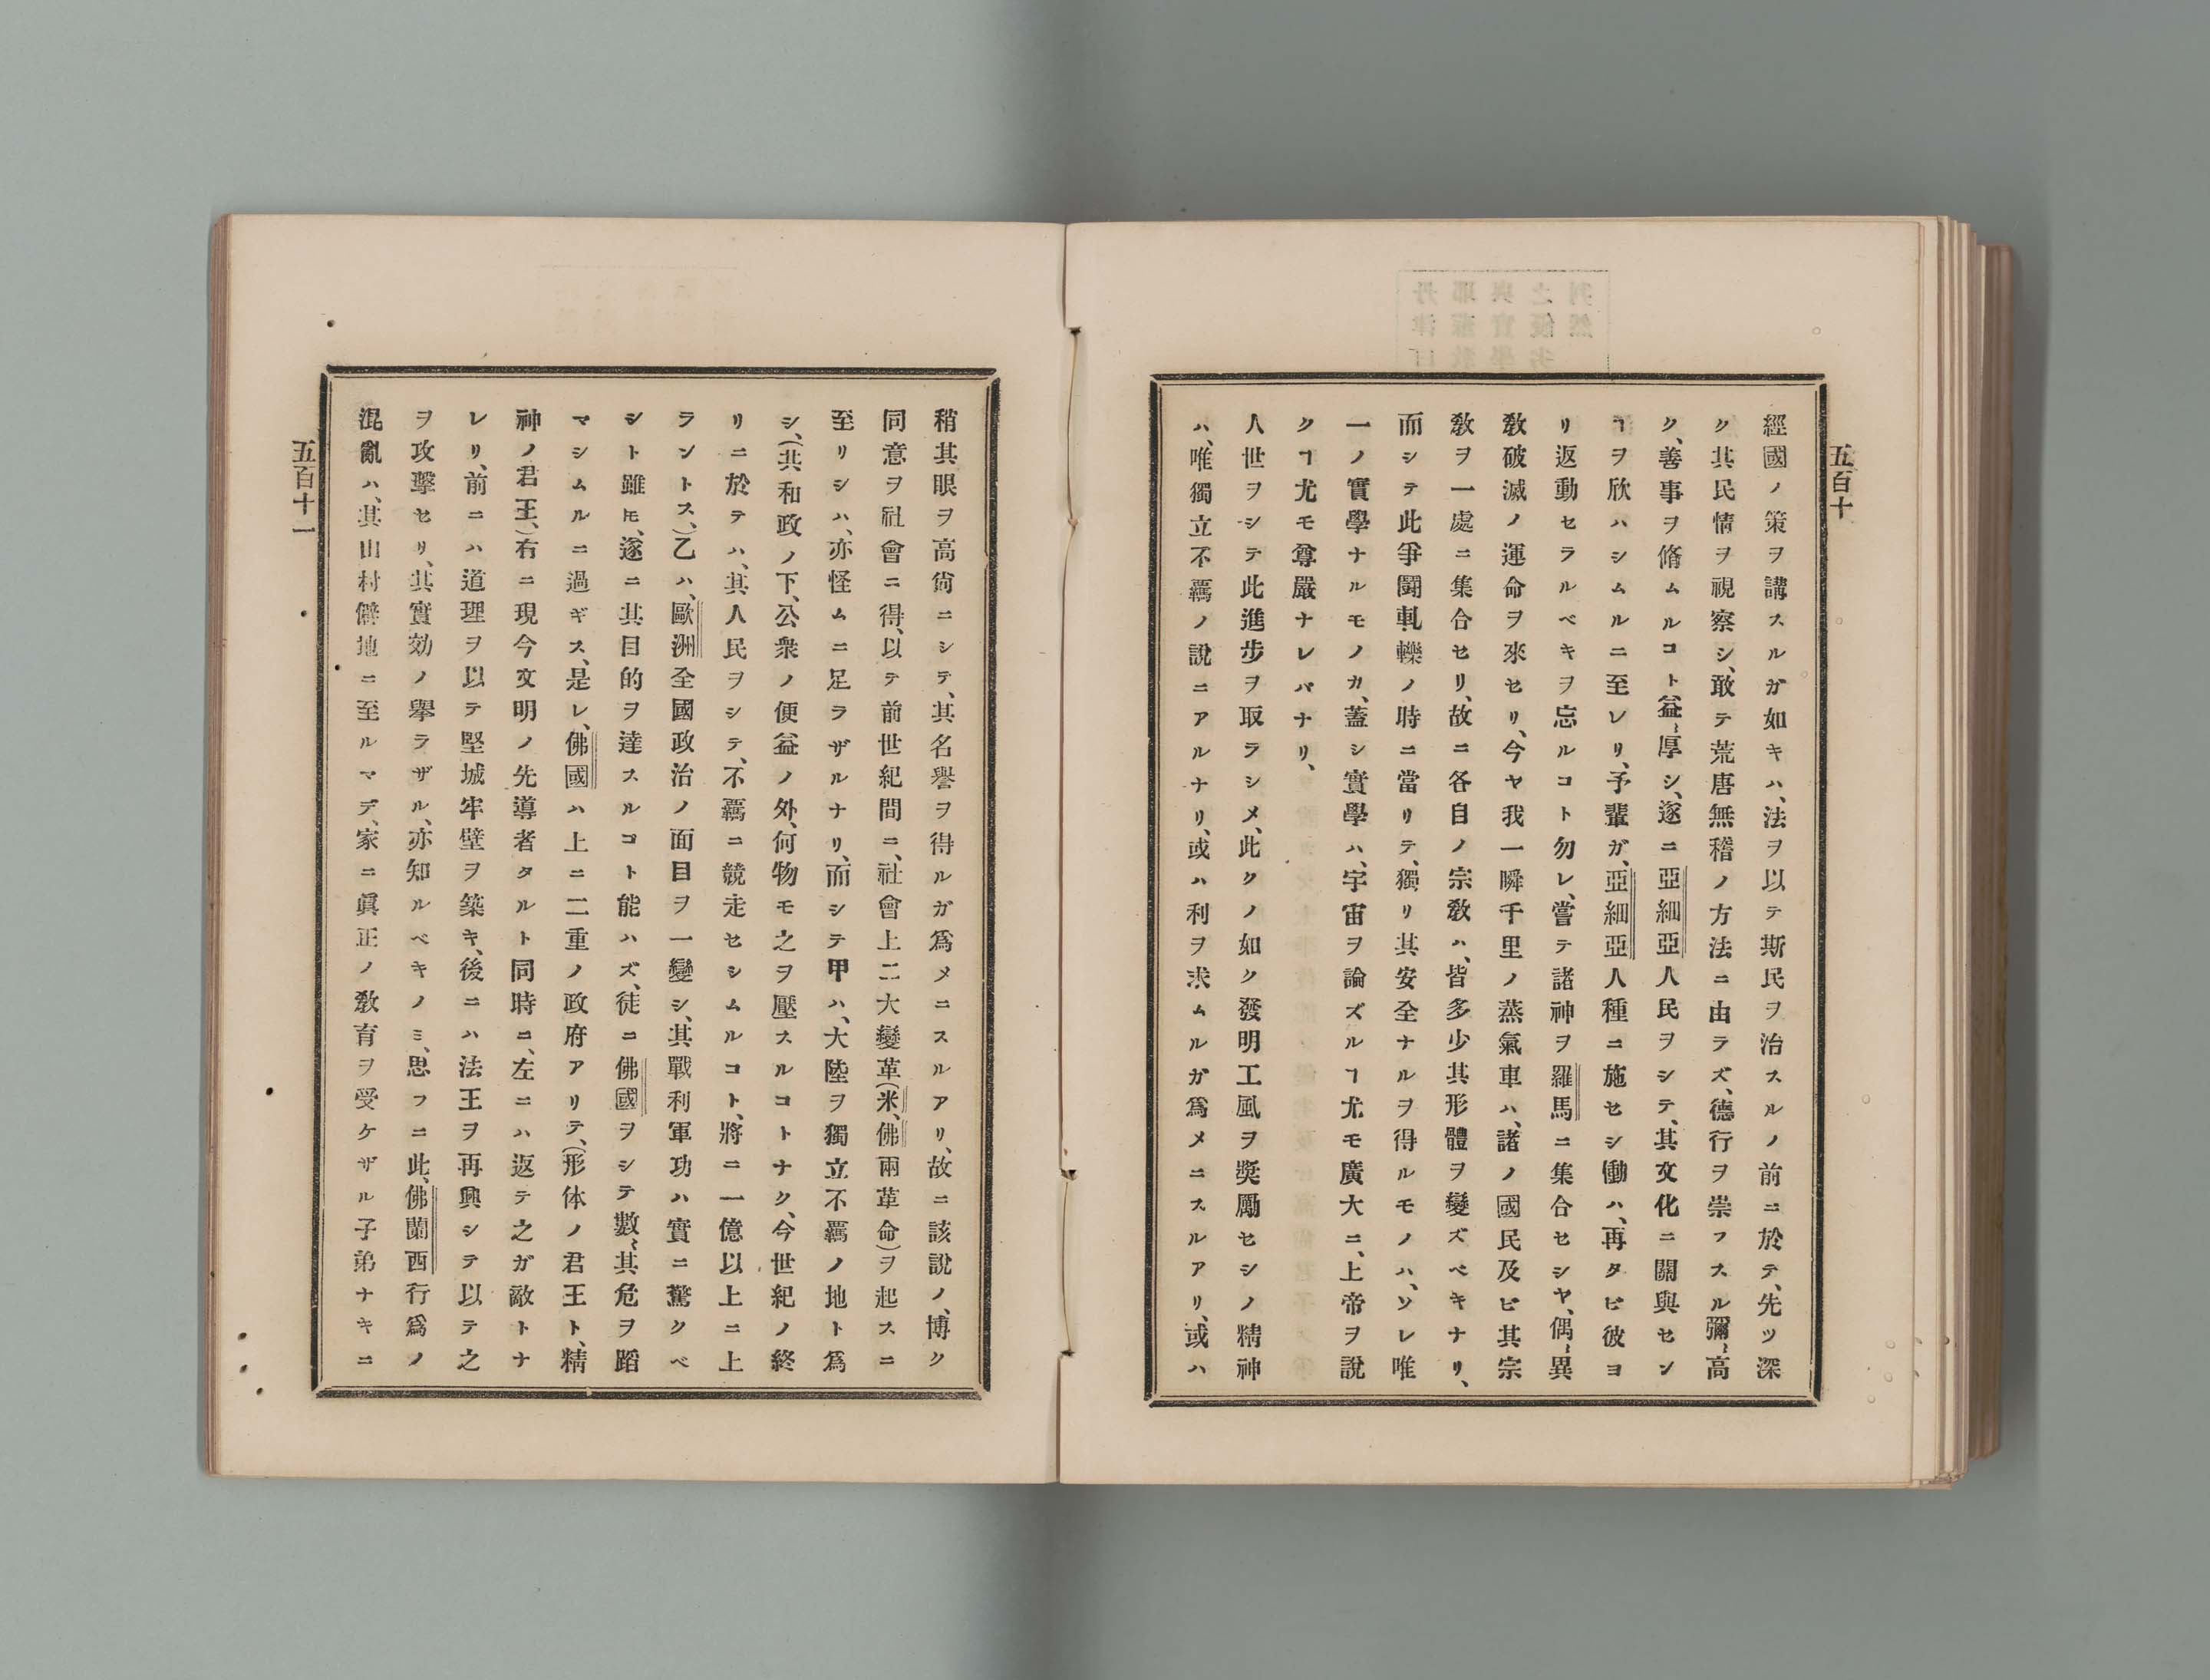 五百十
經國ノ策ヲ講スルガ如キハ、法ヲ以テ斯民ヲ治スルノ前ニ於テ、先ツ深
ク其民情ヲ視察シ、敢テ荒唐無稽ノ方法ニ由ラズ、德行ヲ崇フスル彌〻高
ク、善事ヲ脩ムルコト益〻厚シ、遂ニ亞細亞人民ヲシテ、其文化ニ關與セン
ヿヲ欣ハシムルニ至レリ、予輩ガ、亞細亞人種ニ施セシ働ハ、再タビ彼ヨ
リ返動セラルベキヲ忘ルコト勿レ、嘗テ諸神ヲ羅馬ニ集合セシヤ、偶〻異
敎破滅ノ運命ヲ來セリ、今ヤ我一瞬千里ノ蒸氣車ハ、諸ノ國民及ビ其宗
敎ヲ一處ニ集合セリ、故ニ各自ノ宗敎ハ、皆多少其形體ヲ變ズベキナリ、
而シテ此爭鬪軋轢ノ時ニ當リテ、獨リ其安全ナルヲ得ルモノハ、ソレ唯
一ノ實學ナルモノカ、蓋シ實學ハ、宇宙ヲ論ズルヿ尤モ廣大ニ、上帝ヲ說
クヿ尤モ尊嚴ナレバナリ、
人世ヲシテ此進步ヲ取ラシメ、此クノ如ク發明工風ヲ奬勵セシノ精神
ハ、唯獨立不羈ノ說ニアルナリ、或ハ利ヲ求ムルガ爲メニスルアリ、或ハ
稍其眼ヲ高尙ニシテ、其名譽ヲ得ルガ爲メニスルアリ、故ニ該說ノ、博ク
同意ヲ社會ニ得、以テ前世紀間ニ、社會上二大變革(米、佛兩革命)ヲ起スニ
至リシハ、亦怪ムニ足ラザルナリ、而シテ甲ハ、大陸ヲ獨立不羈ノ地ト爲
シ、(共和政ノ下、公衆ノ便益ノ外、何物モ之ヲ壓スルコトナク、今世紀ノ終
リニ於テハ、其人民ヲシテ、不羈ニ競走セシムルコト、將ニ一億以上ニ上
ラントス、)乙ハ、歐洲全國政治ノ面目ヲ一變シ、其戰利軍功ハ實ニ驚クベ
シト雖ㇳモ、遂ニ其目的ヲ達スルコト能ハズ、徒ニ佛國ヲシテ數〻其危ヲ蹈
マシムルニ過ギス、是レ、佛國ハ上ニ二重ノ政府アリテ、(形体ノ君王ト、精
神ノ君王、)右ニ現今文明ノ先導者タルト同時ニ、左ニハ返テ之ガ敵トナ
レリ、前ニハ道理ヲ以テ堅城牢壁ヲ築キ、後ニハ法王ヲ再興シテ以テ之
ヲ攻擊セリ、其實効ノ擧ラザル、亦知ルベキノミ、思フニ此、佛蘭西行爲ノ
混亂ハ、其山村僻地ニ至ルマデ、家ニ眞正ノ敎育ヲ受ケザル子弟ナキニ
五百十一